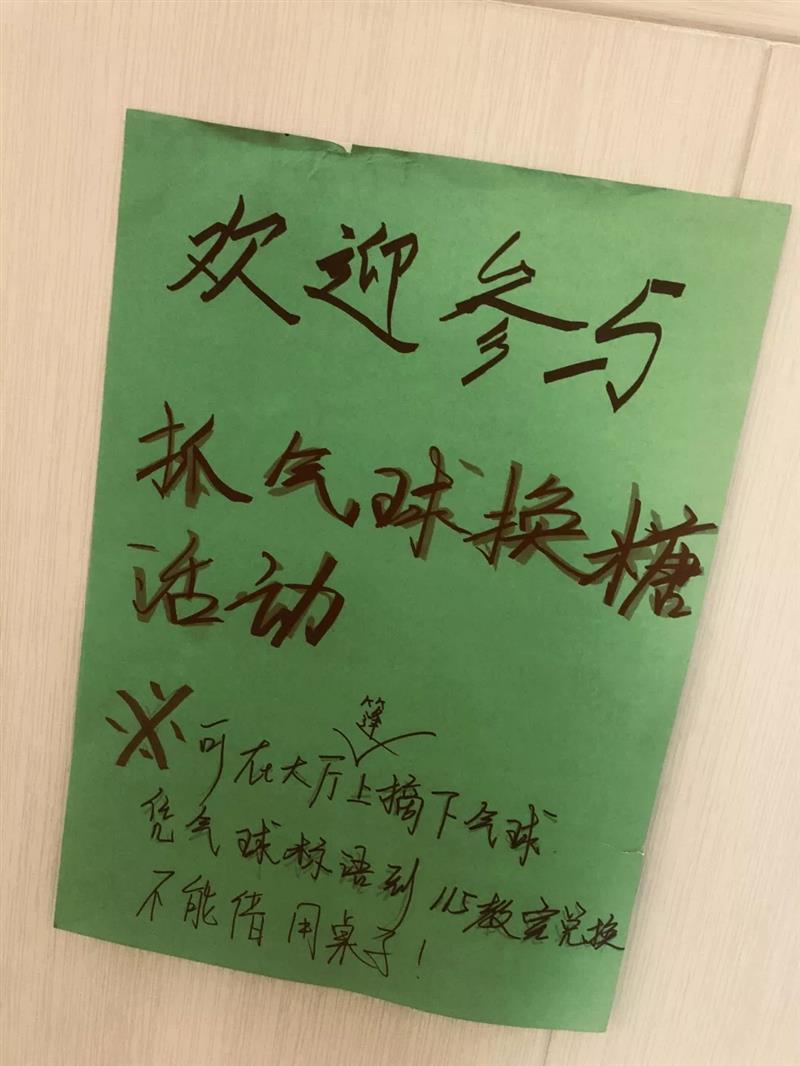 欢迎参与
抓气球换糖
活动
※可在大厅篷上摘下气球
凭气球标语到115教室兑换
不能借用桌子！